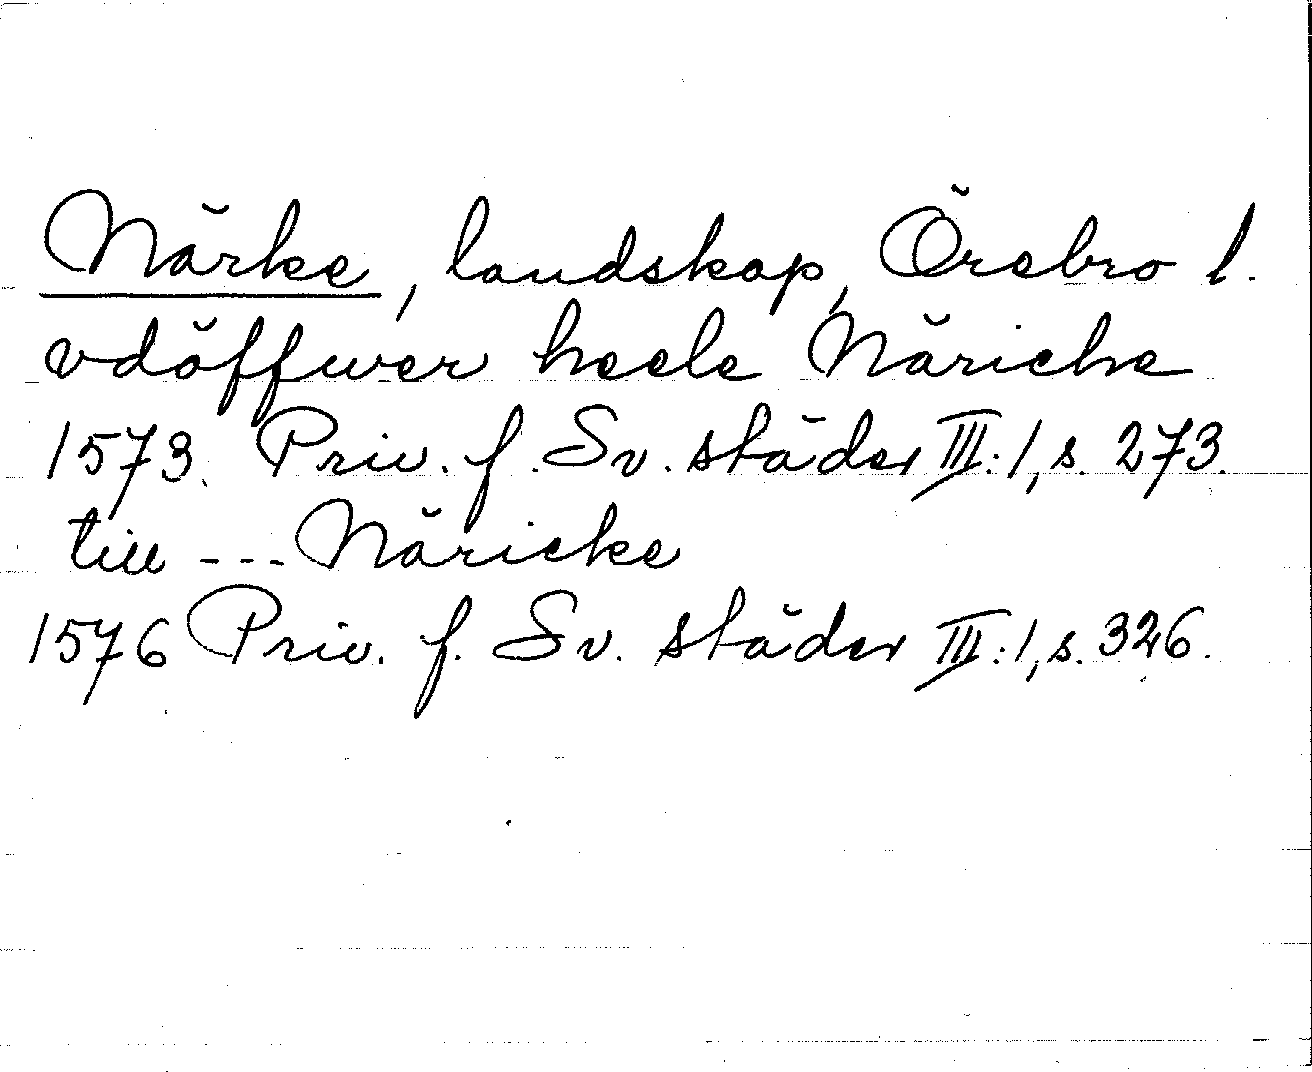 Närke, landskap, Örebro l.
vdöffwer heele Näricke
1573. Priv. f. Sv. städer III:1, s. 273.
till --- Näricke
1576 Priv. f. Sv. städer III:1, s. 326.